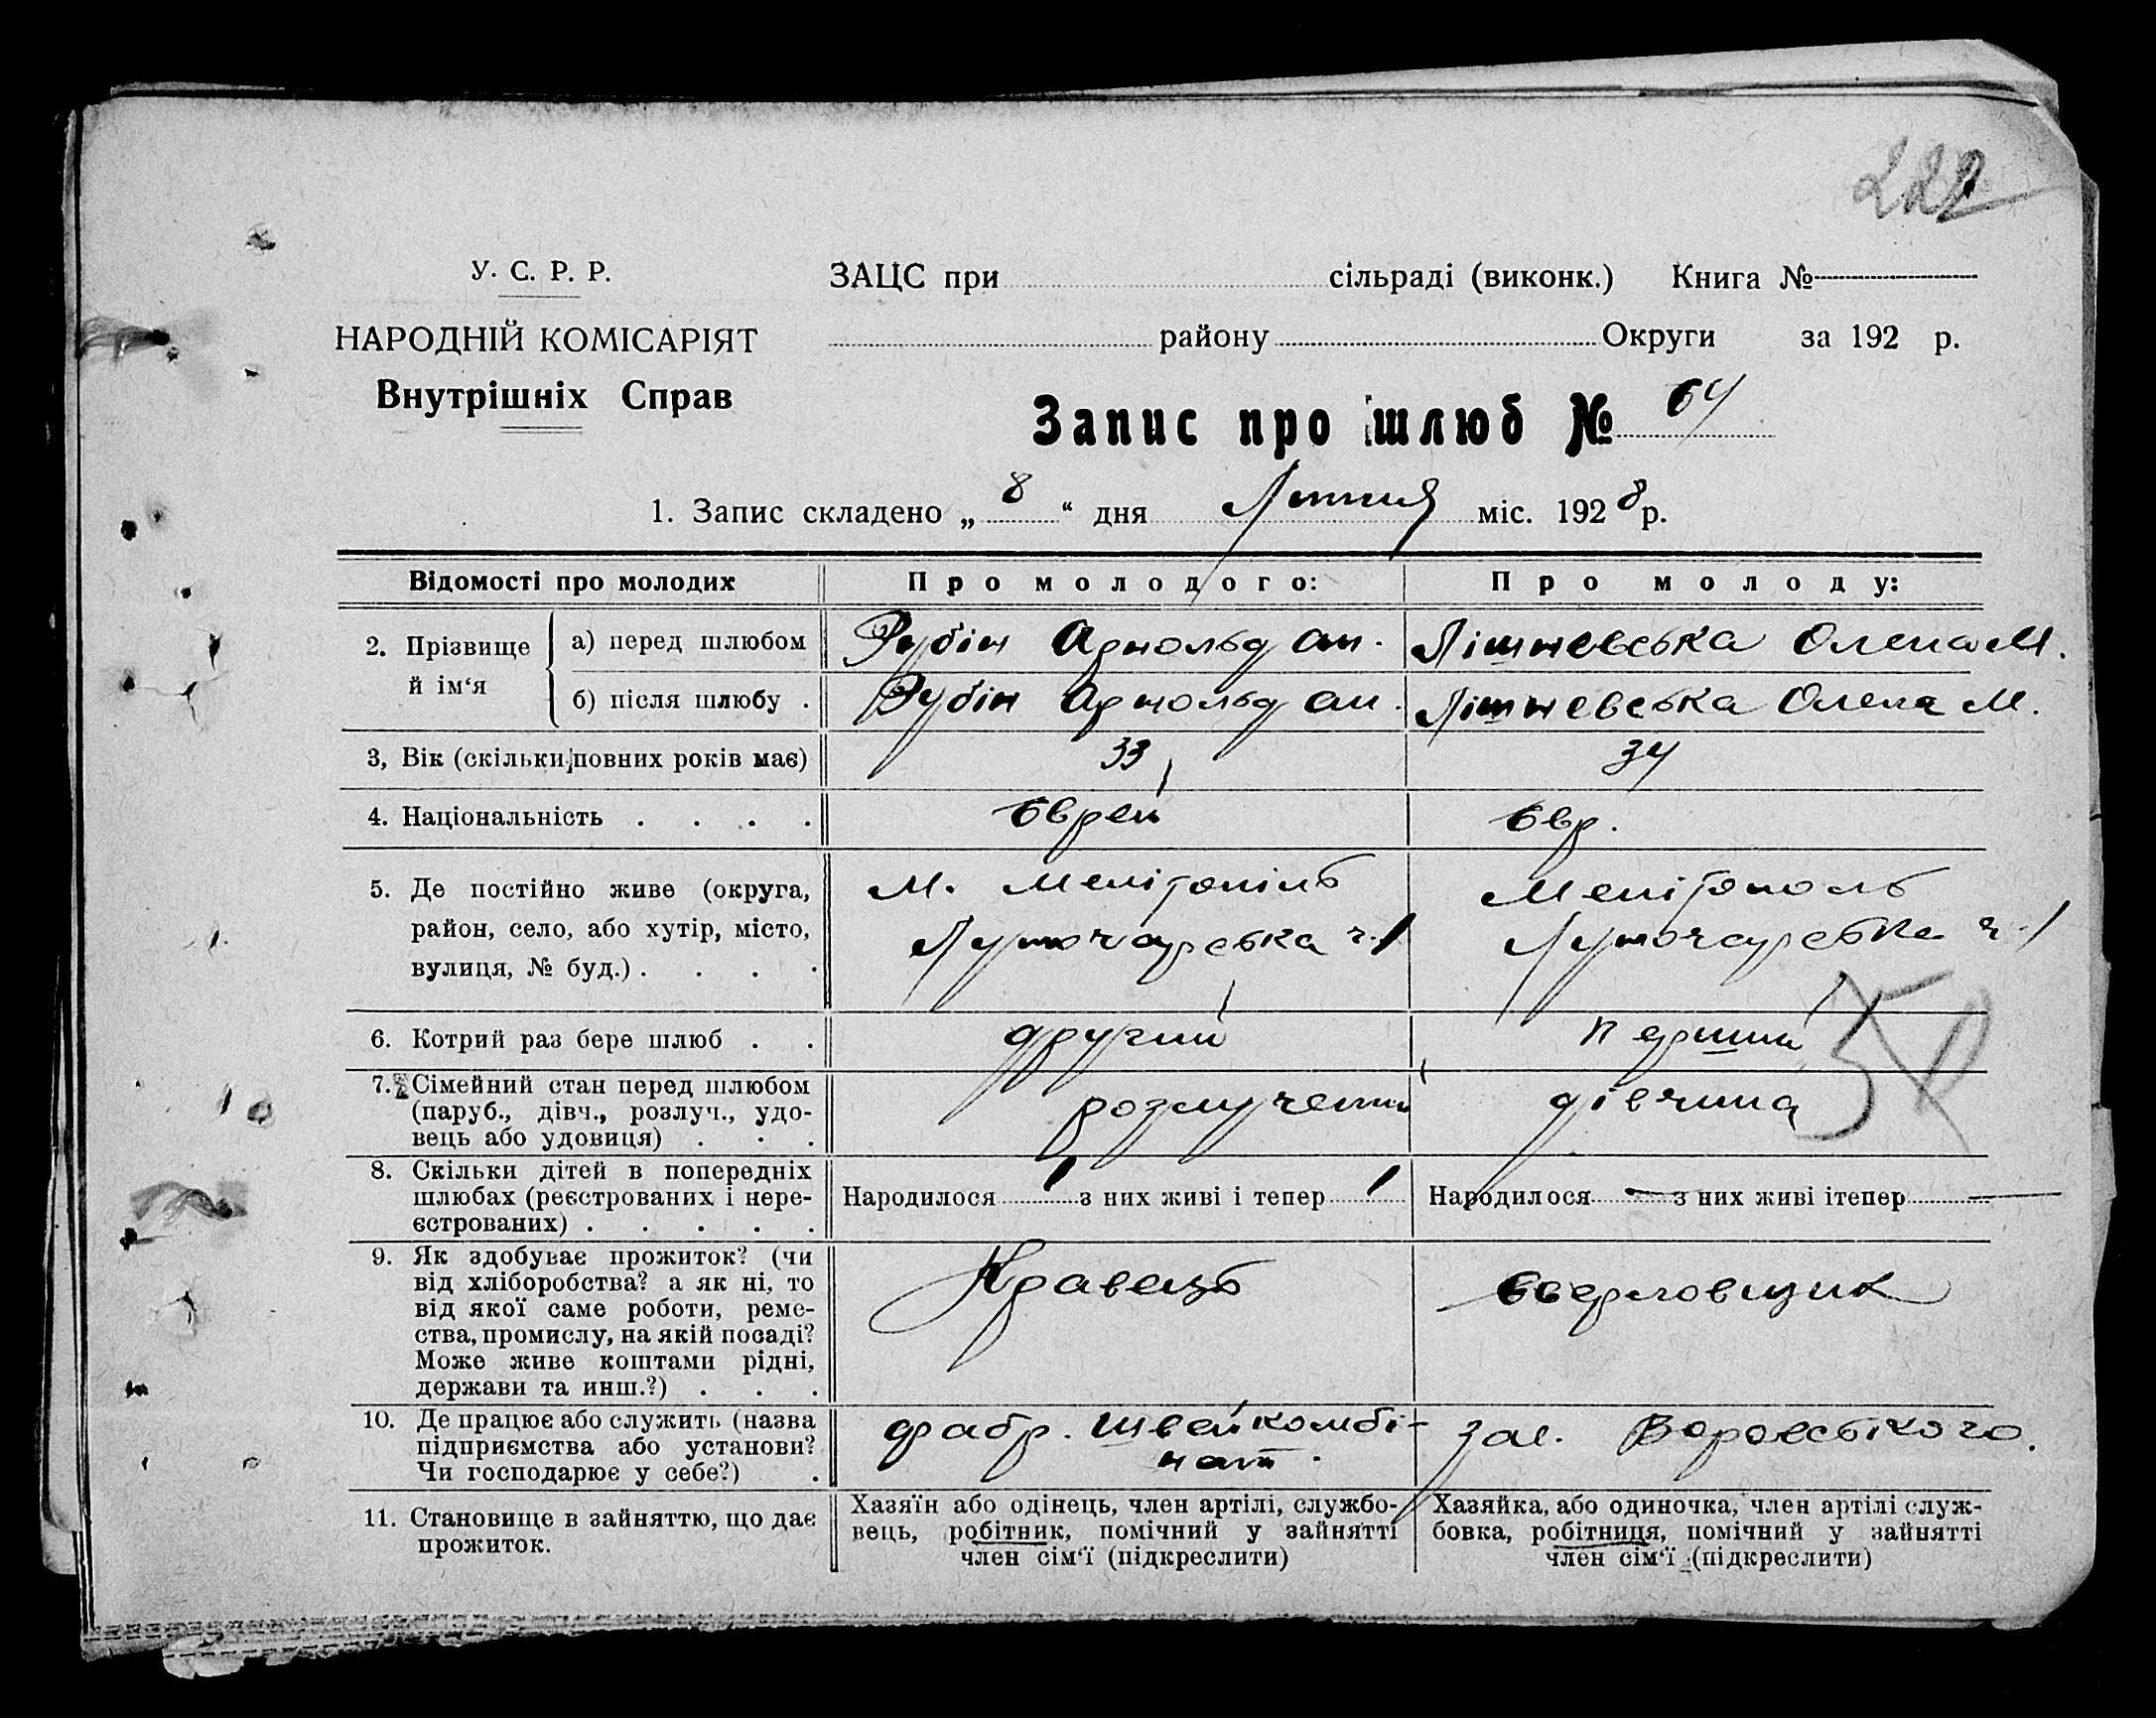 222
У. С. Р. Р.
НАРОДНІЙ КОМІСАРІЯТ
Внутрішніх Справ
ЗАЦС при сільраді (виконк.) Книга №
району Округи за 192 р.
Запис про шлюб № 64
1. Запис складено „ 8 “ дня Липня міс. 192 8 р.
Відомості про молодих
Про молодого:
Про молоду:
2. Прізвище й ім‘я
а) перед шлюбом
Рубін Арнольд Ан.
Лішневська Олена М.
б) після шлюбу .
Рубін Арнольд Ан.
Лішневська Олена М.
3, Вік (скільки повних років має)
33
34
4. Національність . . . .
Єврей
Євр.
5. Де постійно живе (округа,
район, село, або хутір, місто,
вулиця, № буд.) . . . .
М. Мелітопіль
ч. 1
Мелітополь
ч. 1
6. Котрий раз бере шлюб . .
другий
перший
50
7. Сімейний стан перед шлюбом
(паруб., дівч., розлуч., удо-
вець або удовиця) . . .
розлучений
дівчина
8. Скільки дітей в попередніх
шлюбах (реєстрованих і нере-
єстрованих) . . . . .
Народилося 1 з них живі і тепер 1
Народилося — з них живі ітепер —
9. Як здобуває прожиток? (чи
від хліборобства? а як ні, то
від якої саме роботи, реме-
ства, промислу, на якій посаді?
Може живе коштами рідні,
держави та инш.?) . . .
Кравець
10. Де працює або служить (назва
підприємства або установи?
Чи господарює у себе?) .
фабр. Швейкомбі-
нат.
зав. Воровського.
11. Становище в зайняттю, що дає
прожиток.
Хазяїн або одінець, член артілі, службо-
вець, робітник, помічний у зайнятті
член сім‘ї (підкреслити)
Хазяйка, або одиночка, член артілі служ-
бовка, робітниця, помічний у зайнятті
член сім‘ї (підкреслити)